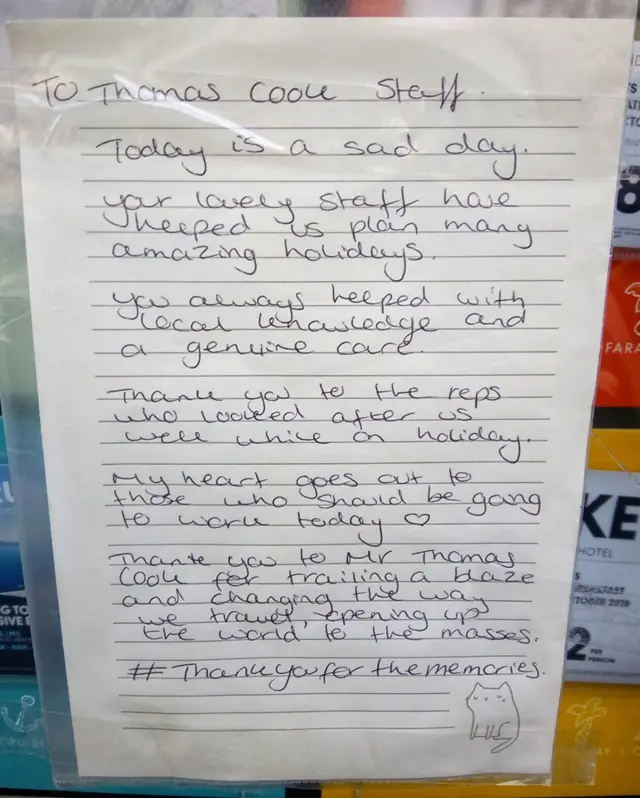 TO Thomas Cook Staff.
Today is a sad day.
your lovely staff have
helped us plan many
amazing holidays.
you always helped with
local knowledge and
a genuine care.
Thank you to the reps
who looked after us
well while on holiday.
My heart goes out to
those who should be going
to work today ♡
Thank you to Mr Thomas
Cook for trailing a blaze
and changing the way
we travel, opening up
the world to the masses.
# Thankyouforthememories.
FARA
KE
HOTEL
TOBER 2019
2
PER
PERSON